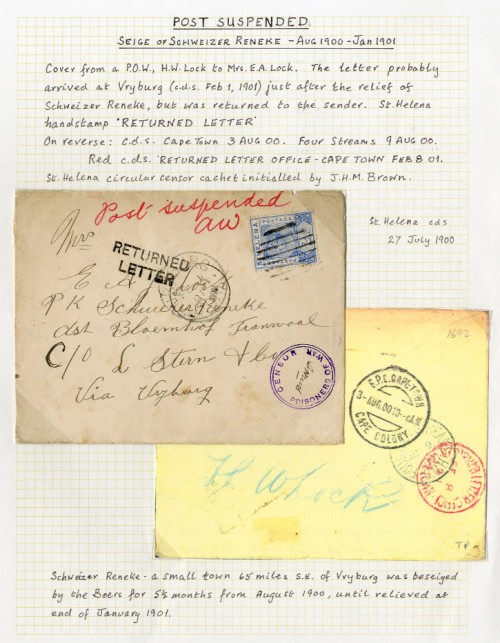 POST SUSPENDED.
SEIGE OF SCHWEIZER RENEKE - AUG 1900 - JAN 1901
Cover from a P.O.W., H.W. Lock to Mrs. E.A. Lock. The letter probably
arrived at Vryburg (c.d.s. Feb 1, 1901) just after the relief of
Schweizer Reneke, but was returned to the sender. St. Helena
handstamp 'RETURNED LETTER'
On reverse: c.d.s. Cape Town 3 AUG 00. Four Streams 9 AUG 00.
Red c.d.s. 'RETURNED LETTER OFFICE - CAPE TOWN FEB 8 01.
St. Helena circular censor cachet initialled by J.H.M. Brown.
Post suspended
AW
St. Helena cds
27 July 1900
Mrs
RETURNED
LETTER
POSTAGE
E A Lock
P K Schweizer Reneke
dst Bloemhof Transvaal
C/o L Stern & Co
Via Vryburg
CENSOR
PRISONERS OF WAR
1692
G.P.O. CAPE TOWN
3 - AUG 00
CAPE COLONY
H W Lock
TP
Schweizer Reneke - a small town 65 miles S.E. of Vryburg was beseiged
by the Boers for 5½ months from August 1900, until relieved at
end of January 1901.